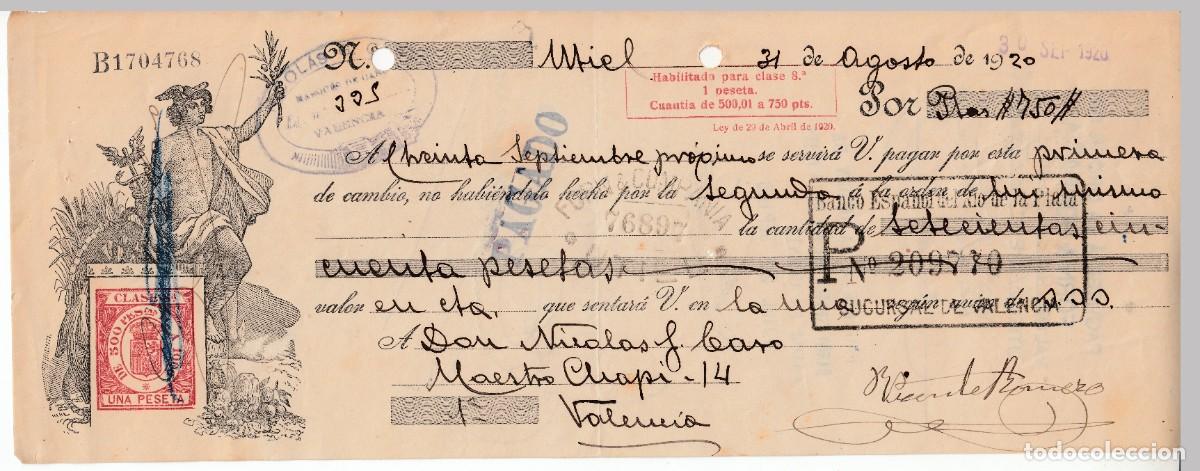 B1704768
N. Utiel 31 de Agosto de 1920
30 SEP 1920
Habilitado para clase 8.ª
1 peseta.
Cuantía de 500,01 a 750 pts.
Ley de 29 de Abril de 1920.
Por Ptas //750//
VALENCIA
PAGADO
A treinta Septiembre próximo se servirá V. pagar por esta primera
de cambio, no habiéndolo hecho por la segunda á la orden de mi mismo
76897
Banco Español del Rio de la Plata
la cantidad de setecientas cin-
cuenta pesetas
P Nº 209770
valor en cta, que sentará V. en la mia según aviso de s.s.s.
SUCURSAL DE VALENCIA
A Don Nicolas J. Caro
Maestro Chapi-14
Valencia
Vicente Romero
CLASE
500 PESETAS
UNA PESETA
todocoleccion